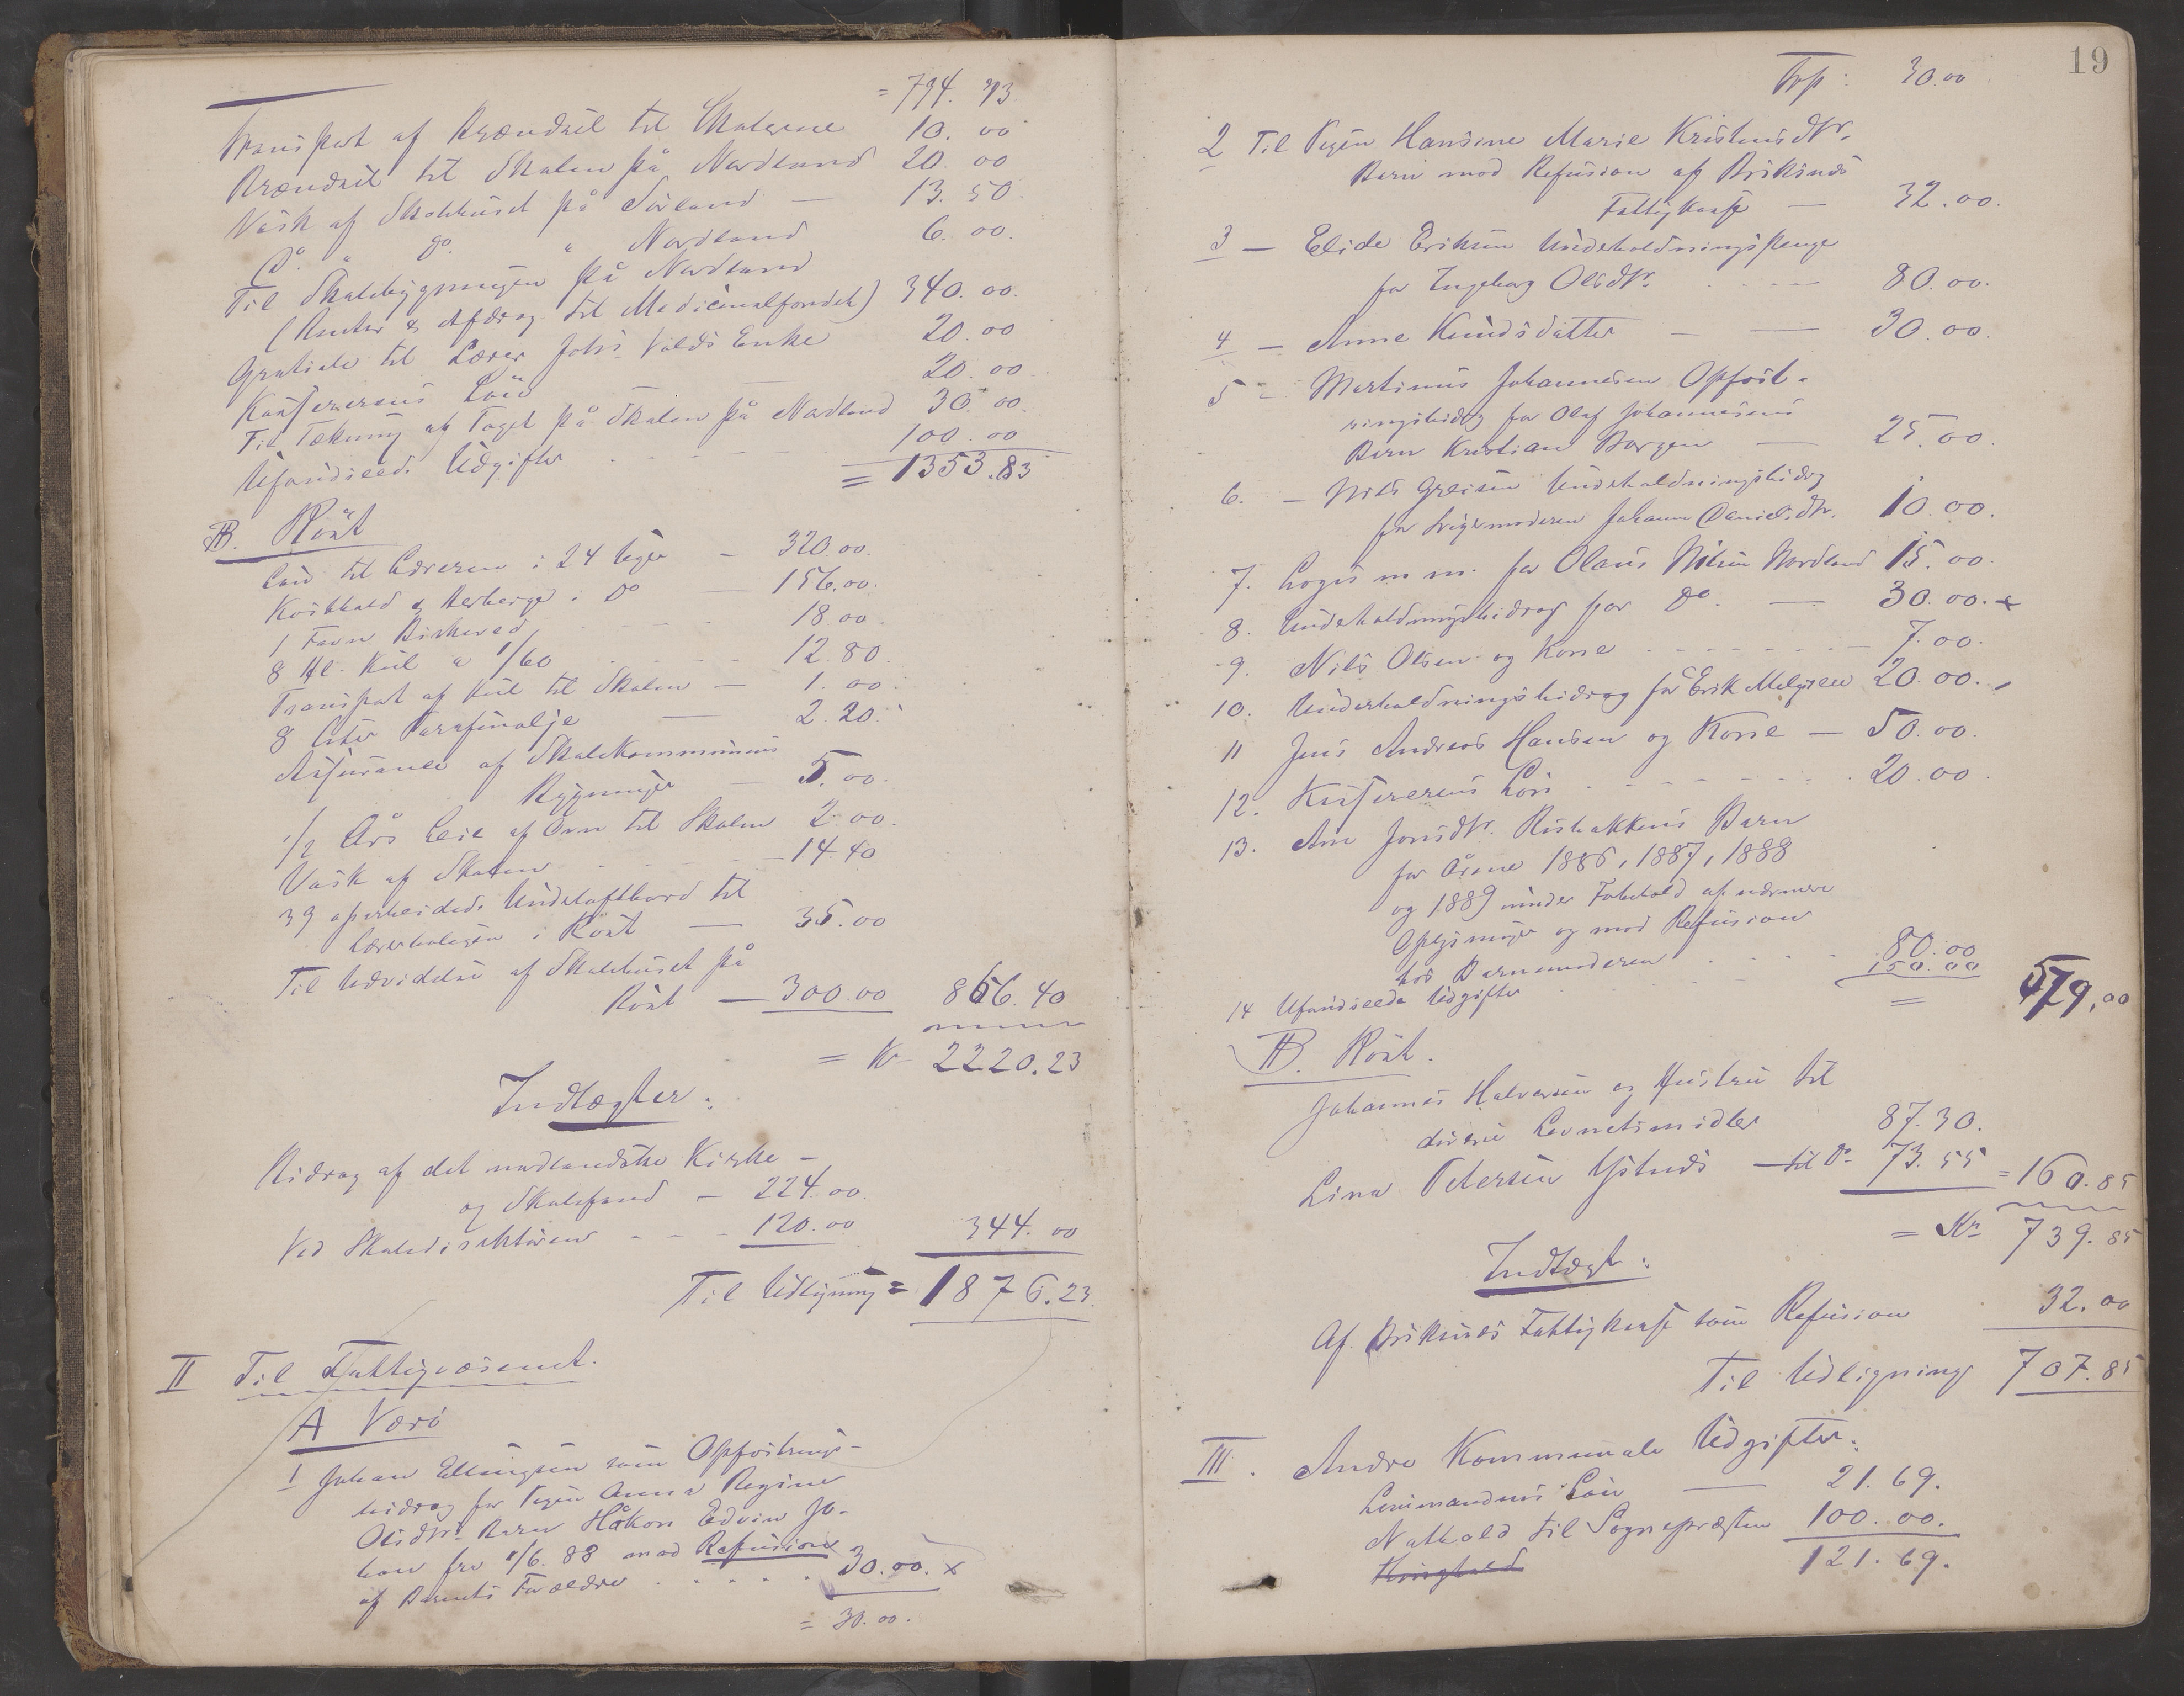 = 794. 33
Transport af Brændsel til Skolerne 10. 00
Brændsel til Skolen på Nordland 20. 00
Vask af Skolehuset på Sørland — 13. 50
Do. " do. " Nordland 6. 00.
Til Skolebygningen på Nordland
(Renter & Afdrag til Medicinalfondet) 340. 00.
Gratiale til Lærer Johs Volds Enke 20. 00
Kassererens Løn — 20. 00
Til Tækning af Taget på Skolen på Nordland 30. 00.
Uforudseede Udgifter . . . . 100. 00
= 1353.83
B. Røst
Løn til Læreren i 24 Uger — 320.00.
Kosthold og Herberge i Do — 156.00.
1 Favn Birkeved, . . . 18.00
8 Hl. Kul a 1/60 . . . . 12.80.
Transport af Kul til Skolen — 1. 00
8 Liter Parafinolje — 2. 20.
Assurance af Skolekommunens
Bygninger — 5. 00.
1/2 Års Leie af Ovn til Skolen 2. 00.
Vask af Skolen . . . . 14. 40
39 oparbeided. Underloftbord til
Lærerboligen i Røst — 35. 00
Til Udvidelse af Skolehuset på
Røst — 300. 00 866. 40
= Kr 2220. 23
Indtægter:
Bidrag af det nordlandske Kirke-
og Skolefond — 224. 00
Ved Skoledirektøren - - - 120. 00 344. 00
Til Udligning = 1876. 23.
II Til Fattigvæsenet.
A Værø
1 Johan Ellingsen som Opfostrings-
bidrag for Pigen Anna Regine
Olsdtr. Barn Håkon Edvin Jo-
han fra 1/6. 88 mod Refusion
af Barnets Forældre . . . . . 30. 00. x
= 30. 00.
19
Trsp: 30. 00
2 Til Pigen Hansine Marie Kristensdtr.
Barn mod Refusion af Buksnes
Fattigkasse — 32. 00.
3 — Elide Eriksen Underholdningspenge
for Ingeborg Olsdtr. . . . — 80. 00.
4 — Anne Knudsdatter — — 30. 00.
5 — Martinus Johannesen Opfost-
ringsbidrag for Olaf Johannesens
Barn Kristian Borgen — 25. 00.
6. — Nils Greisen Underholdningsbidrag
for Svigermoderen Johanna Danielsdtr. 10. 00.
7. Logis m m. for Olaus Nilsen Nordland 15. 00.
8. Underholdningsbidrag for do. — 30. 00. x
9. Nils Olsen og Kone . . . . . 7. 00.
10. Underholdningsbidrag for Erik Melgsen 20. 00.
11 Jens Andreas Hansen og Kone — 50. 00.
12. Kassererens Løn . . . . . . 20. 00.
13. Ane Jonsdtr. Risbakkens Barn
for Årene 1886, 1887, 1888
og 1889 under Forbehold af nærmere
Oplysninger og mod Refusion
hos Barnemoderen . . . . 80. 00
14 Uforudseede Udgifter . . . . 150. 00
= 579, 00
B. Røst.
Johannes Halvorsen og Hustru til
diverse Levnetsmidler 87. 30.
Lina Petersen Ystnes — til Do 73. 55 = 160. 85
= Kr 739. 85
Indtægt:
Af Buksnes Fattigkasse som Refusion 32. 00
Til Udligning 707. 85
III. Andre Kommunale Udgifter.
Lensmandens Løn — 21. 69.
Nathold til Sognepræsten 100. 00.
121. 69.